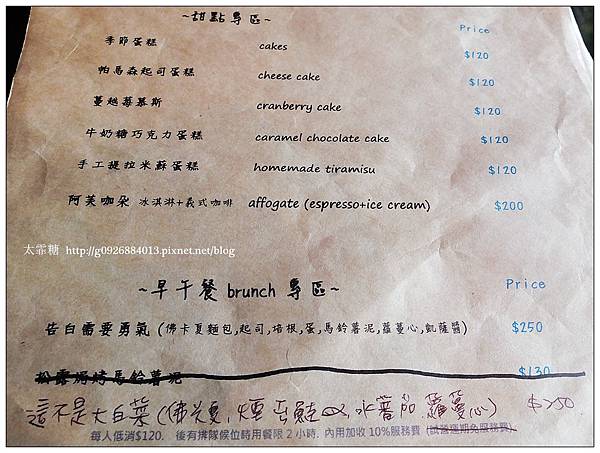 ~甜點專區~ Price
季節蛋糕 cakes $120
帕馬森起司蛋糕 cheese cake $120
蔓越莓慕斯 cranberry cake $120
牛奶糖巧克力蛋糕 caramel chocolate cake $120
手工提拉米蘇蛋糕 homemade tiramisu $120
阿芙咖朵 冰淇淋+義式咖啡 affogate (espresso+ice cream) $200
太霏糖 http://g0926884013.pixnet.net/blog
~早午餐 brunch 專區~ Price
告白需要勇氣 (佛卡夏麵包,起司,培根,蛋,馬鈴薯泥,蘿蔓心,凱薩醬) $250
松露焗烤馬鈴薯泥 $130
這不是大白菜 (佛夏, 煙 鮭 , 水 茄 蘿蔓心) $250
每人低消$120. 後有排隊候位時用餐限 2 小時. 內用加收 10%服務費 (試營運期免服務費)